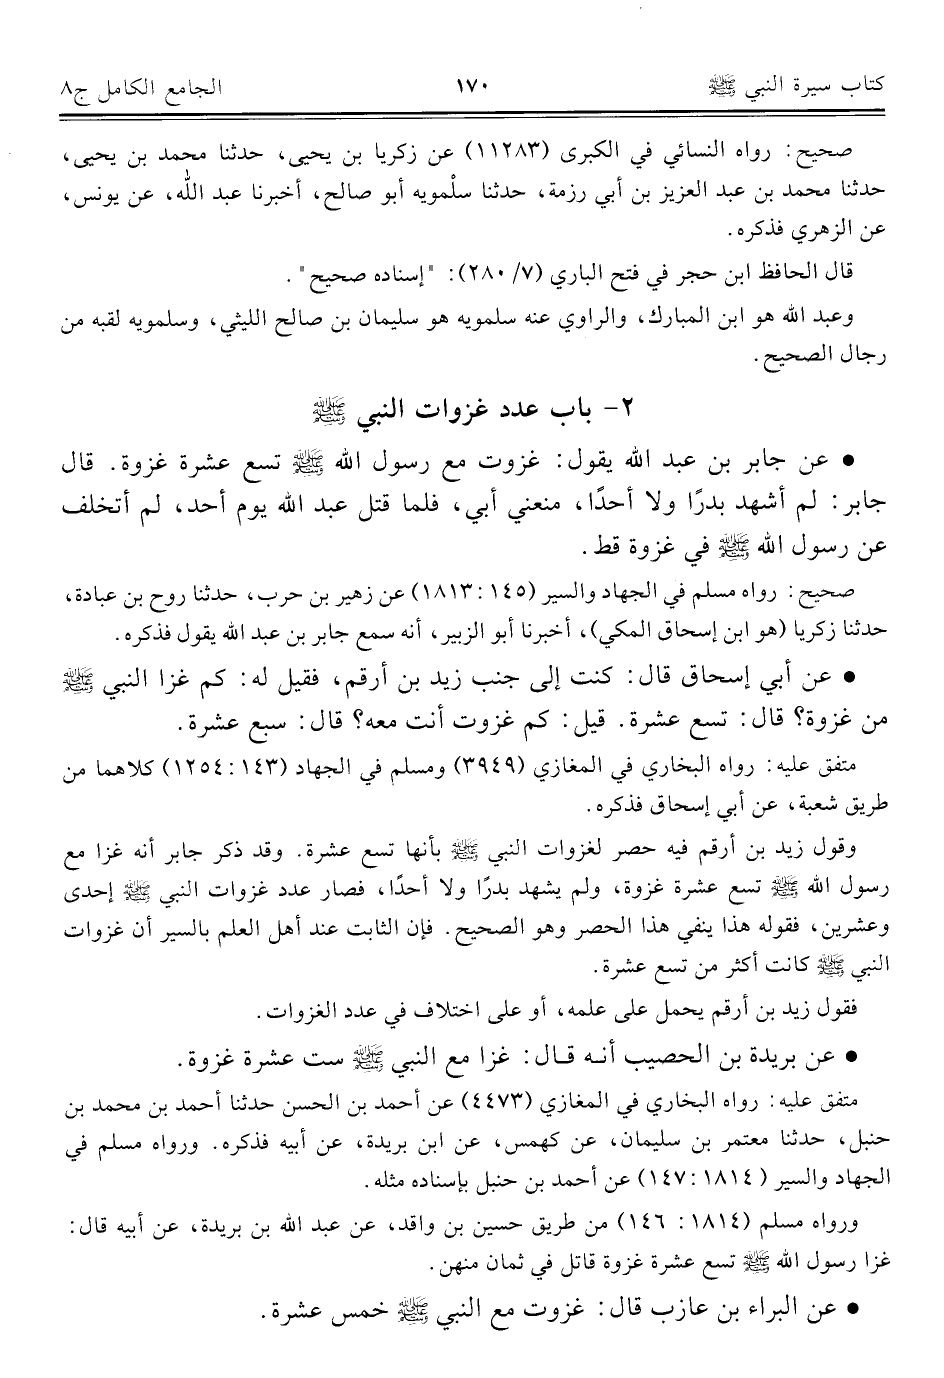 كتاب سيرة النبي ﷺ ١٧٠ الجامع الكامل ج٨
صحيح: رواه النسائي في الكبرى (١١٢٨٣) عن زكريا بن يحيى، حدثنا محمد بن يحيى،
حدثنا محمد بن عبد العزيز بن أبي رزمة، حدثنا سلْمويه أبو صالح، أخبرنا عبد الله، عن يونس،
عن الزهري فذكره.
قال الحافظ ابن حجر في فتح الباري (٧/ ٢٨٠): "إسناده صحيح".
وعبد الله هو ابن المبارك، والراوي عنه سلمويه هو سليمان بن صالح الليثي، وسلمويه لقبه من
رجال الصحيح.
٢- باب عدد غزوات النبي ﷺ
• عن جابر بن عبد الله يقول: غزوت مع رسول الله ﷺ تسع عشرة غزوة. قال
جابر: لم أشهد بدرًا ولا أحدًا، منعني أبي، فلما قتل عبد الله يوم أحد، لم أتخلف
عن رسول الله ﷺ في غزوة قط.
صحيح: رواه مسلم في الجهاد والسير (١٤٥: ١٨١٣) عن زهير بن حرب، حدثنا روح بن عبادة،
حدثنا زكريا (هو ابن إسحاق المكي)، أخبرنا أبو الزبير، أنه سمع جابر بن عبد الله يقول فذكره.
• عن أبي إسحاق قال: كنت إلى جنب زيد بن أرقم، فقيل له: كم غزا النبي ﷺ
من غزوة؟ قال: تسع عشرة. قيل: كم غزوت أنت معه؟ قال: سبع عشرة.
متفق عليه: رواه البخاري في المغازي (٣٩٤٩) ومسلم في الجهاد (١٤٣: ١٢٥٤) كلاهما من
طريق شعبة، عن أبي إسحاق فذكره.
وقول زيد بن أرقم فيه حصر لغزوات النبي ﷺ بأنها تسع عشرة. وقد ذكر جابر أنه غزا مع
رسول الله ﷺ تسع عشرة غزوة، ولم يشهد بدرًا ولا أحدًا، فصار عدد غزوات النبي ﷺ إحدى
وعشرين، فقوله هذا ينفي هذا الحصر وهو الصحيح. فإن الثابت عند أهل العلم بالسير أن غزوات
النبي ﷺ كانت أكثر من تسع عشرة.
فقول زيد بن أرقم يحمل على علمه، أو على اختلاف في عدد الغزوات.
• عن بريدة بن الحصيب أنه قال: غزا مع النبي ﷺ ست عشرة غزوة.
متفق عليه: رواه البخاري في المغازي (٤٤٧٣) عن أحمد بن الحسن حدثنا أحمد بن محمد بن
حنبل، حدثنا معتمر بن سليمان، عن كهمس، عن ابن بريدة، عن أبيه فذكره. ورواه مسلم في
الجهاد والسير (١٨١٤: ١٤٧) عن أحمد بن حنبل بإسناده مثله.
ورواه مسلم (١٨١٤: ١٤٦) من طريق حسين بن واقد، عن عبد الله بن بريدة، عن أبيه قال:
غزا رسول الله ﷺ تسع عشرة غزوة قاتل في ثمان منهن.
• عن البراء بن عازب قال: غزوت مع النبي ﷺ خمس عشرة.